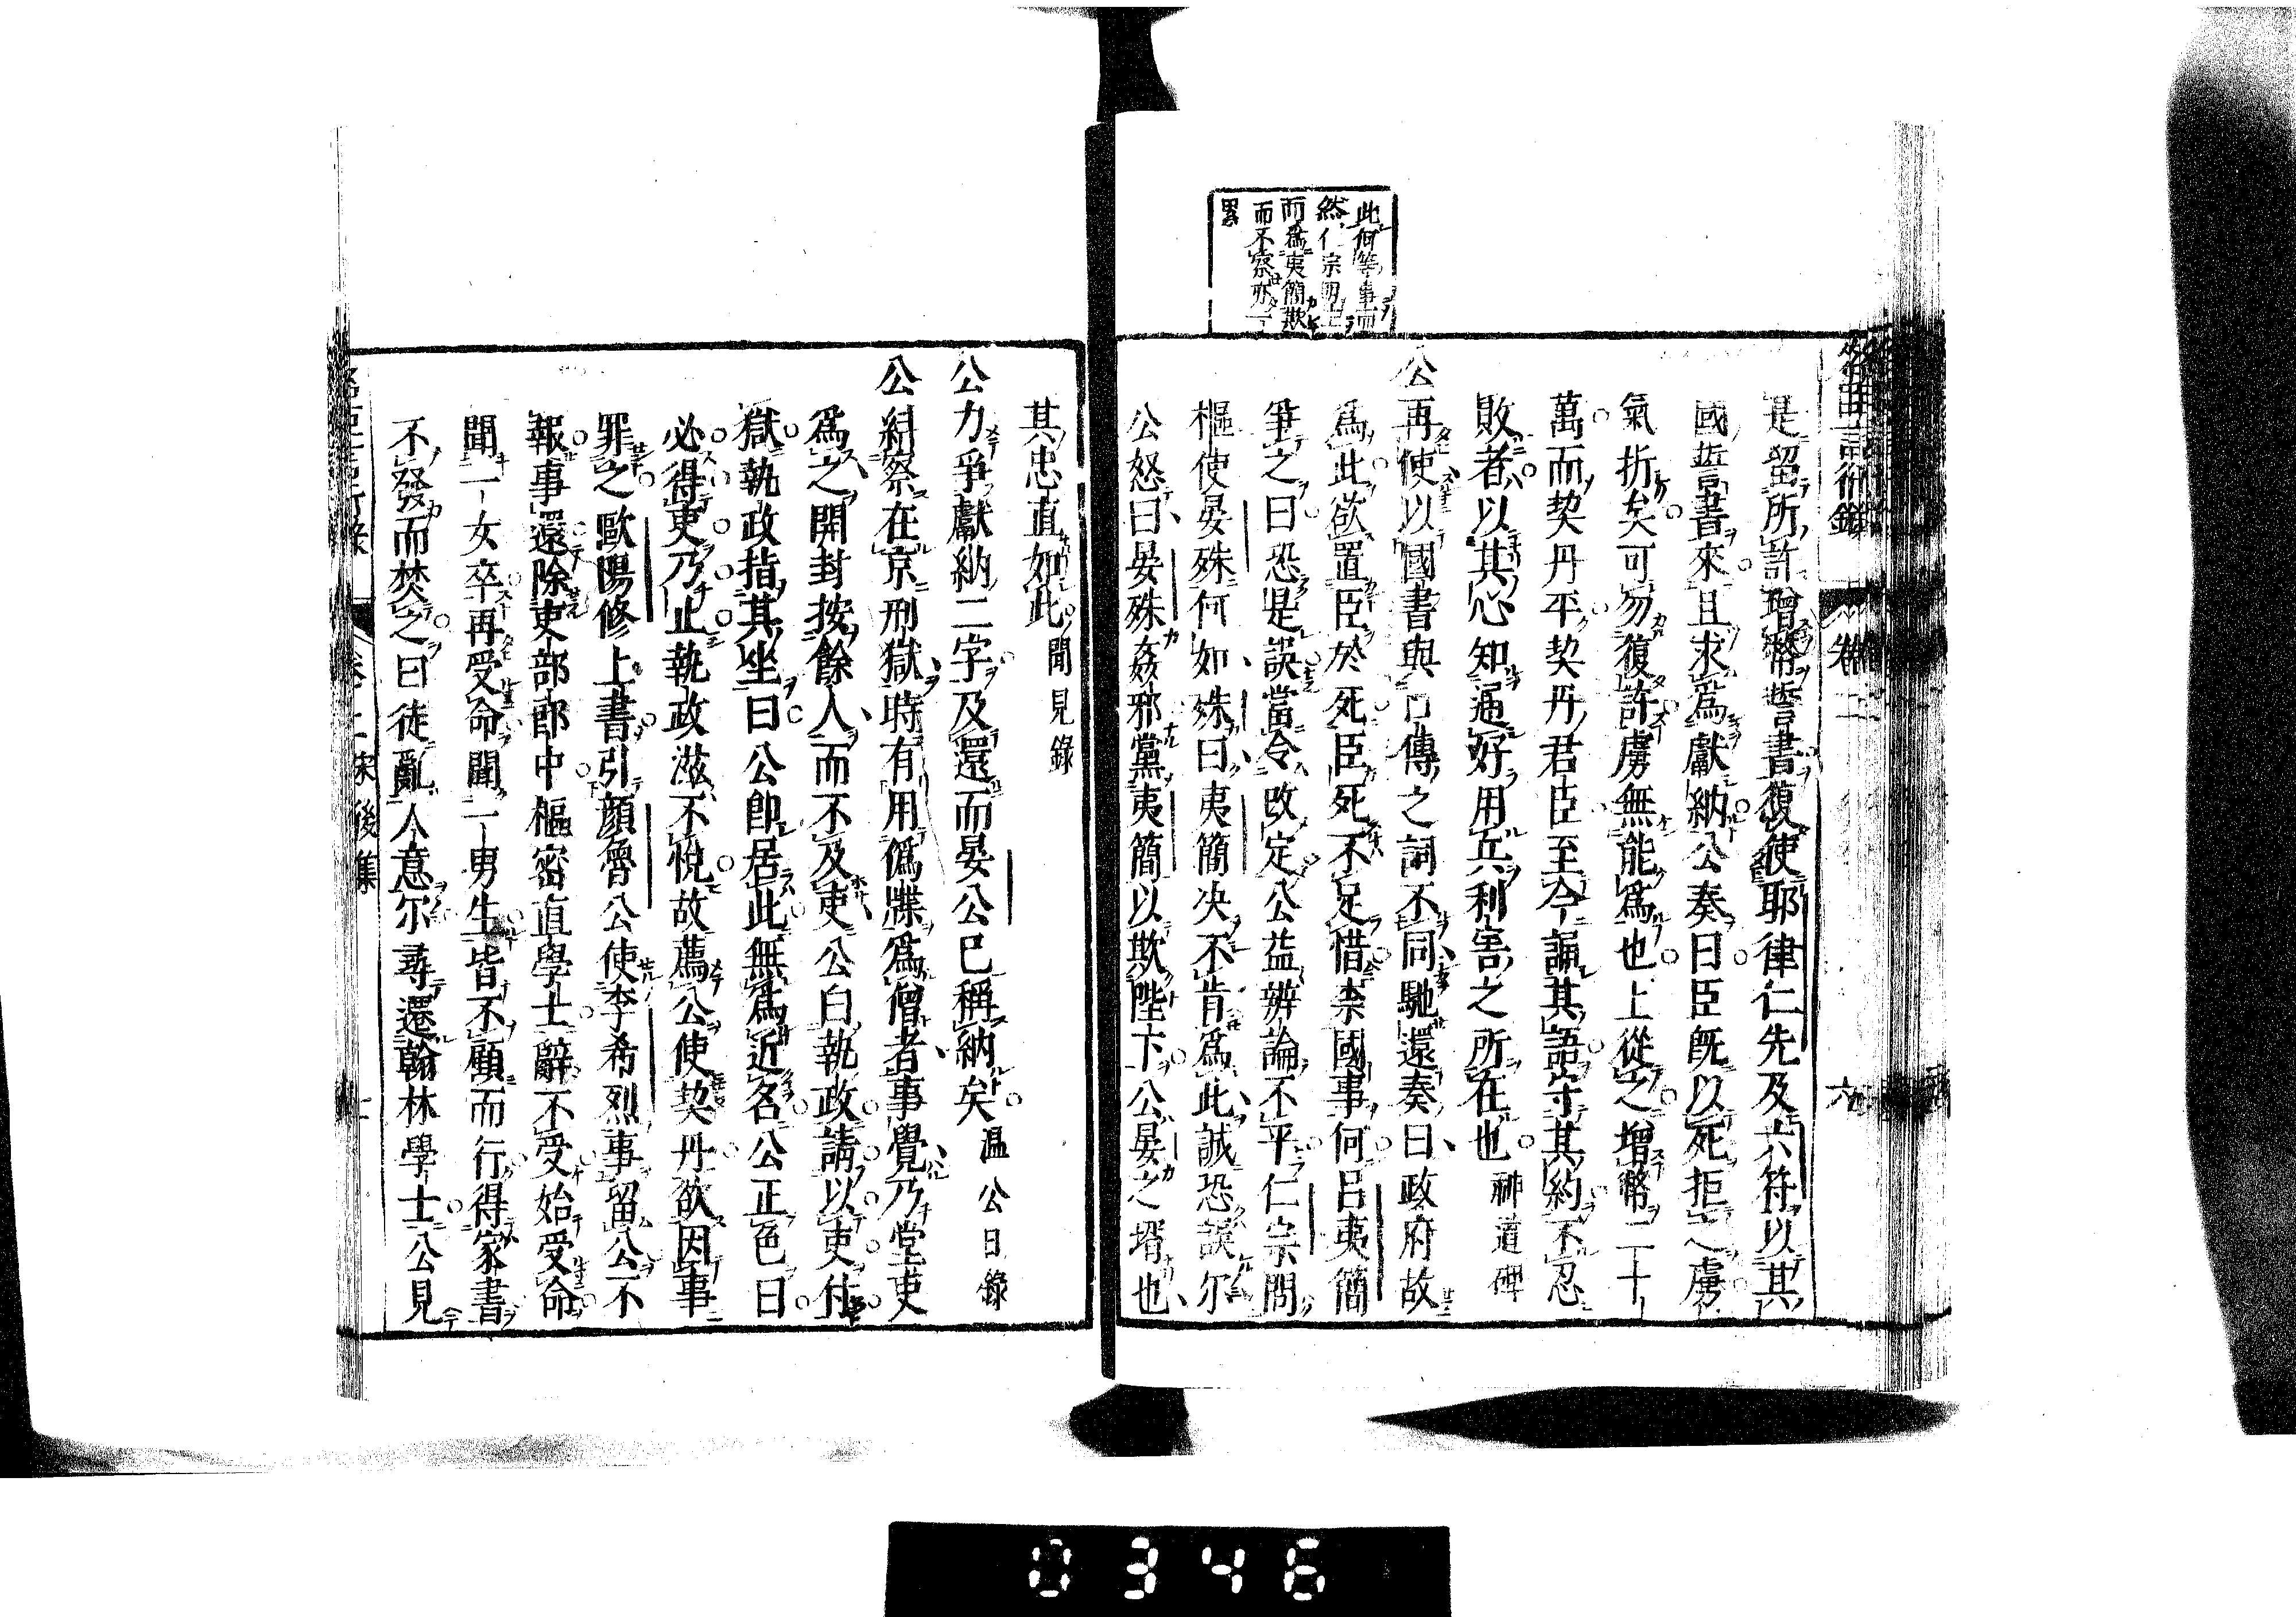 此何等事而
然仁宗明主
而爲夷簡欺
而不察亦一
累
名臣言行錄
卷二
六
是留所許增幣誓書復使耶律仁先及六符以其
國誓書來且求爲獻納公奏曰臣旣以死拒之虜
氣折矣可勿復許虜無能爲也上從之增幣二十
萬而契丹平契丹君臣至今誦其語守其約不忍
敗者以其心知通好用兵利害之所在也 神道碑
公再使以國書與口傳之詞不同馳還奏曰政府故
爲此欲置臣於死臣死不足惜柰國事何呂夷簡
筆之曰恐是誤當令改定公益辨論不平仁宗問
樞使晏殊何如殊曰夷簡决不肯爲此誠恐誤尔
公怒曰晏殊姦邪黨夷簡以欺陛下公晏之壻也
其忠直如此 聞見錄
公力爭獻納二字及還而晏公巳稱納矣 温公日錄
公糾察在京刑獄時有用僞牒爲僧者事覺乃堂吏
爲之開封按餘人而不及吏公白執政請以吏付
獄執政指其坐曰公卽居此無爲近名公正色曰
必得吏乃止執政滋不悅故薦公使契丹欲因事
罪之歐陽修上書引顏魯公使李希烈事留公不
報事還除吏部郎中樞密直學士辭不受始受命
聞一女卒再受命聞一男生皆不顧而行得家書
不發而焚之曰徒亂人意尔尋還翰林學士公見
卷二 宋後集
0346